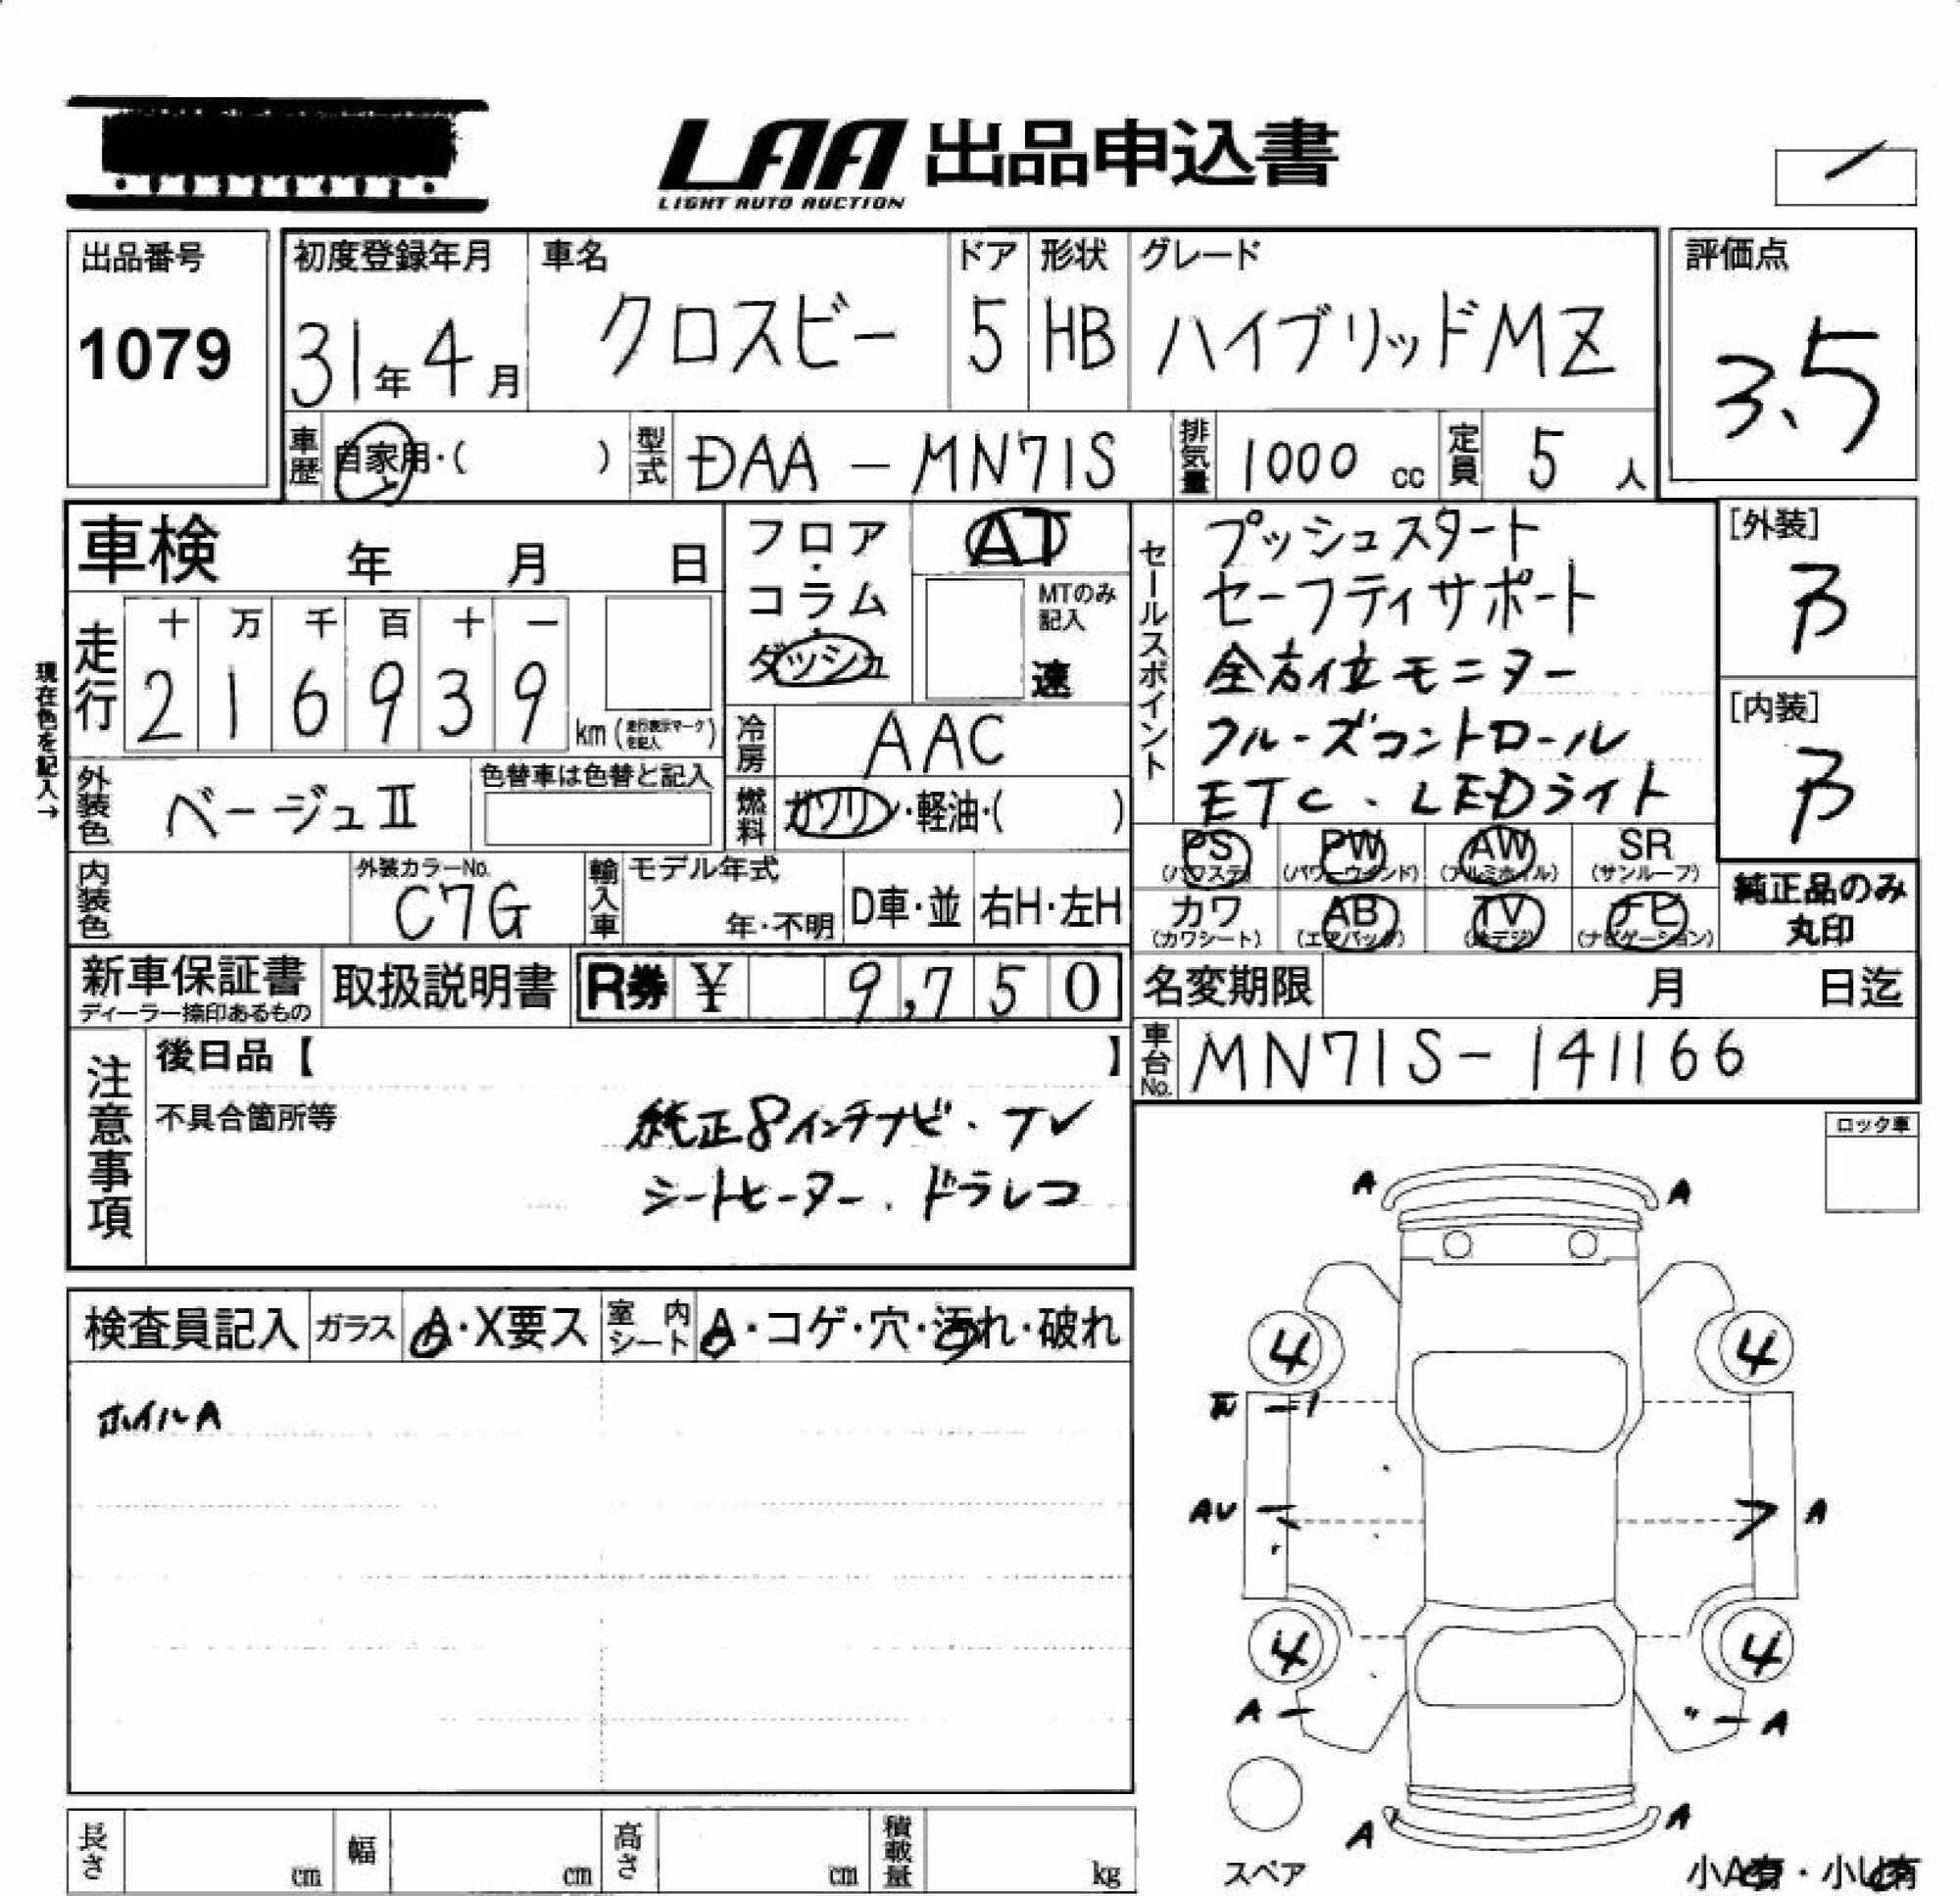 LAA 出品申込書
LIGHT AUTO AUCTION
出品番号
1079
初度登録年月
31年4月
車名
クロスビー
ドア
5
形状
HB
グレード
ハイブリッドMZ
評価点
3.5
車歴 自家用・( )
型式 DAA-MN71S
排気量 1000 cc
定員 5人
車検 年 月 日
フロア・コラム・ダッシュ
AT
MTのみ記入
速
セールスポイント
プッシュスタート
セーフティサポート
全方位モニター
クルーズコントロール
ETC・LEDライト
[外装]
B
[内装]
B
現在色を記入→
走行
十 万 千 百 十 一
2 1 6 9 3 9 km (走行表示マークを記入)
冷房 AAC
外装色 ベージュⅡ
色替車は色替と記入
燃料 ガソリン・軽油・( )
PS (パワステ)
PW (パワーウインド)
AW (アルミホイル)
SR (サンルーフ)
カワ (カワシート)
AB (エアバック)
TV (地デジ)
ナビ (ナビゲーション)
純正品のみ
丸印
内装色
外装カラーNo.
C7G
輸入車
モデル年式
年・不明
D車・並
右H・左H
新車保証書
ディーラー捺印あるもの
取扱説明書
R券 ¥ 9,750
名変期限 月 日迄
車台No. MN71S-141166
注意事項
後日品【 】
不具合箇所等
純正8インチナビ・TV
シートヒーター・ドラレコ
ロック車
検査員記入
ガラス A・X要ス
室内シート A・コゲ・穴・汚れ・破れ
ホイルA
A A
4 4
AU A
4 4
A A
A A
スペア
小A有・小U有
長さ cm
幅 cm
高さ cm
積載量 kg